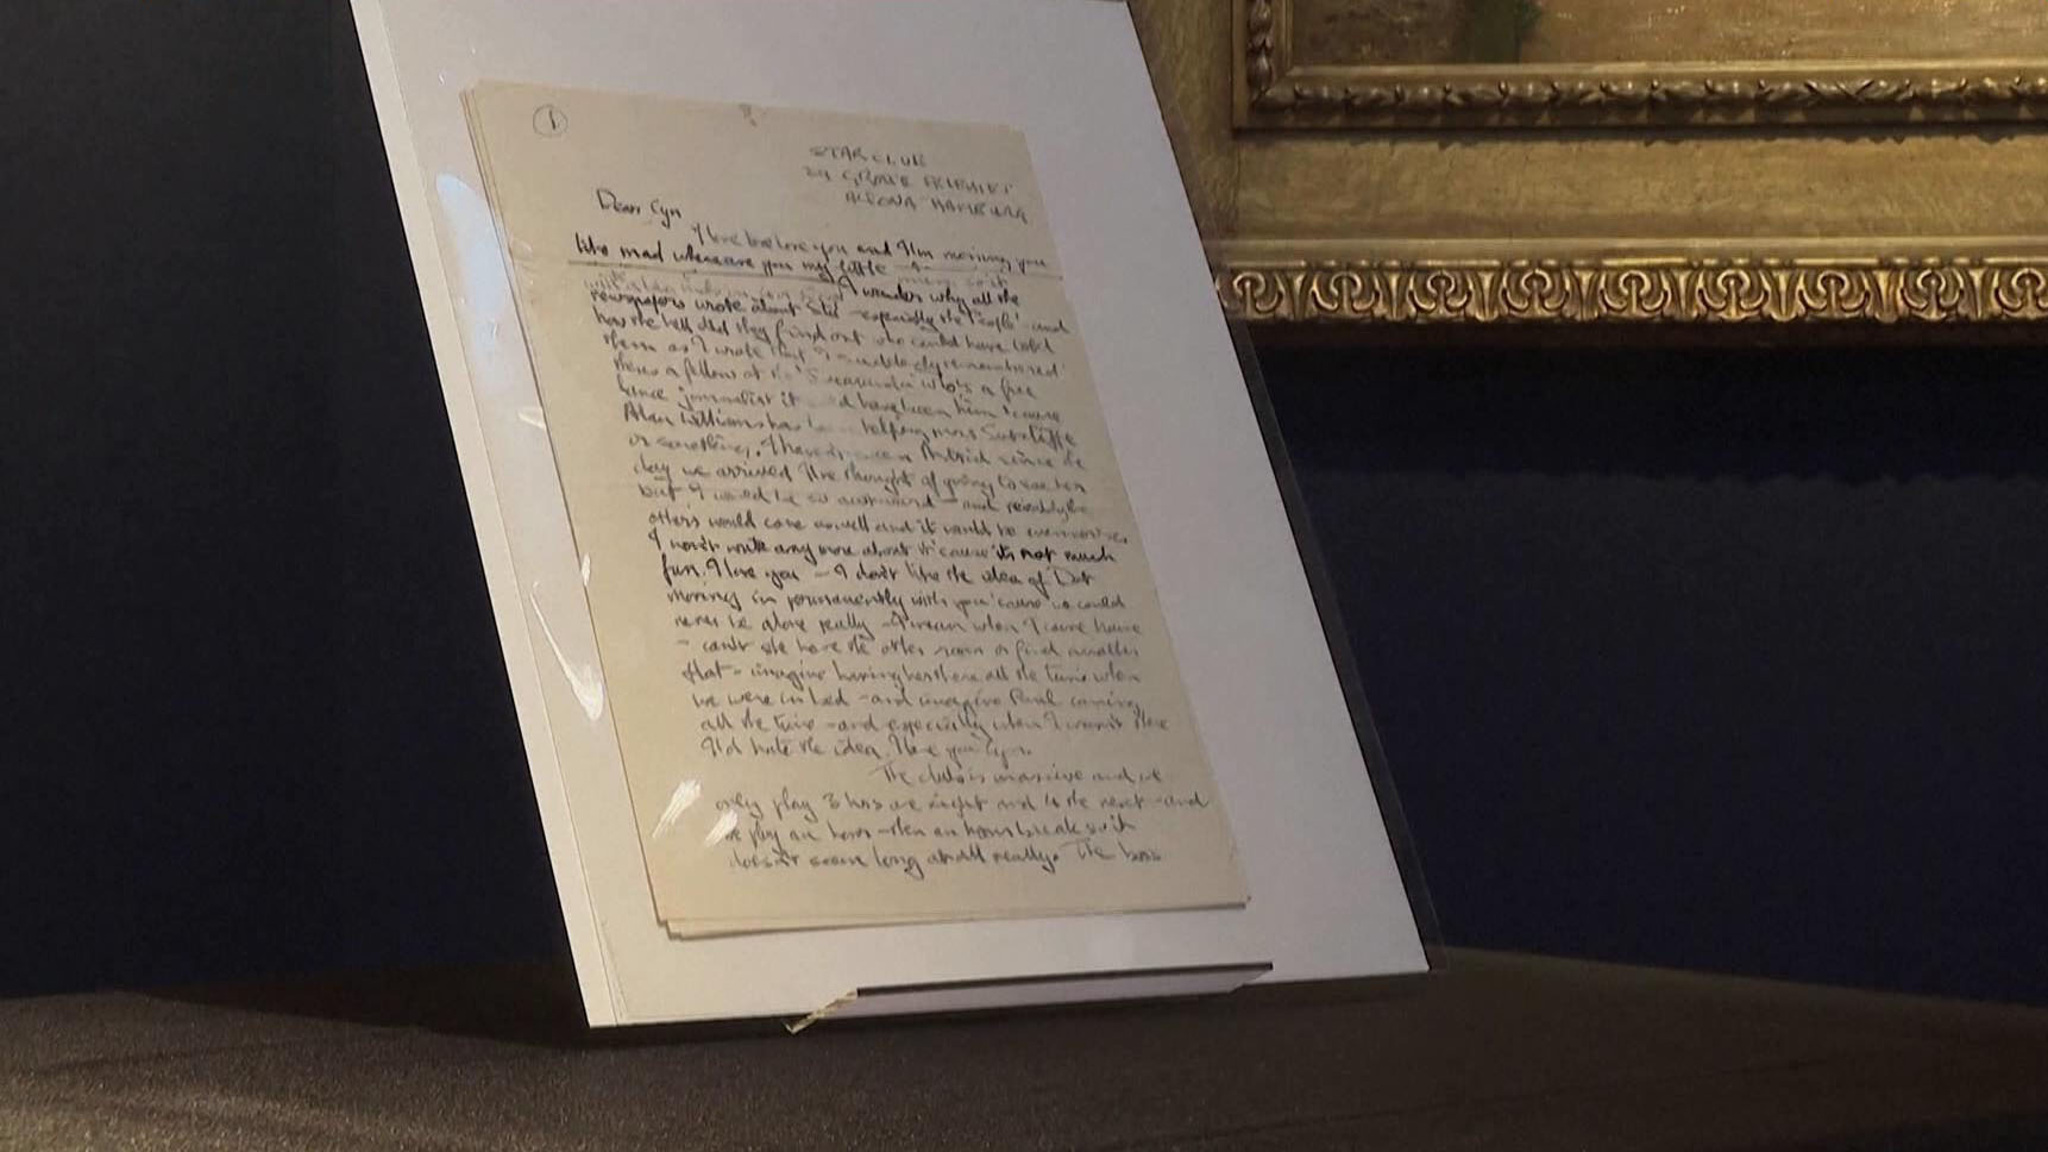 1
STAR CLUB
39 GROSSE FREIHEIT
ALTONA HAMBURG
Dear Cyn
I love love love you and I'm missing you
like mad where are you my little
I wonder why all the
newspapers wrote about Stu - especially the 'People' - and
how the hell did they find out who could have told
them as I wrote that I suddenly remembered
theres a fellow at the who's a free
lance journalist it have been him 'cause
Alan Williams has helping mrs Sutcliffe
or something. I haven't seen Astrid since the
day we arrived I've thought of going to see her
but I would be so awkward - and probably the
others would come as well and it would be even worse.
I won't write any more about it 'cause its not much
fun. I love you - I don't like the idea of Dot
moving in permanently with you 'cause we could
never be alone really - I mean when I come home
- can't she have the other room or find another
flat - imagine having her there all the time when
we were in bed - and imagine Paul coming
all the time - and especially when I wasn't there
I'd hate the idea. I love you Cyn.
The club is massive and we
only play 3 hrs one night and 4 the next - and
we play an hour - then an hours break so it
doesn't seem long at all really. The boss